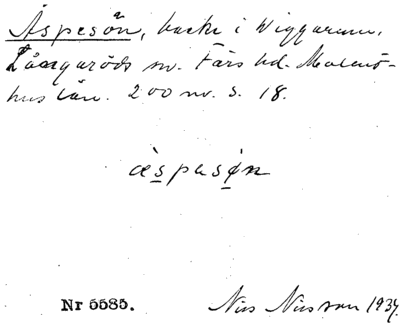 Äspesön, backe i Wiggarum,
Långaröds sn. Färs hd. Malmö-
hus län. 200 nv. S. 18.
æ̀spesøn
Nr 5585.
Nils Nilsson 1934.